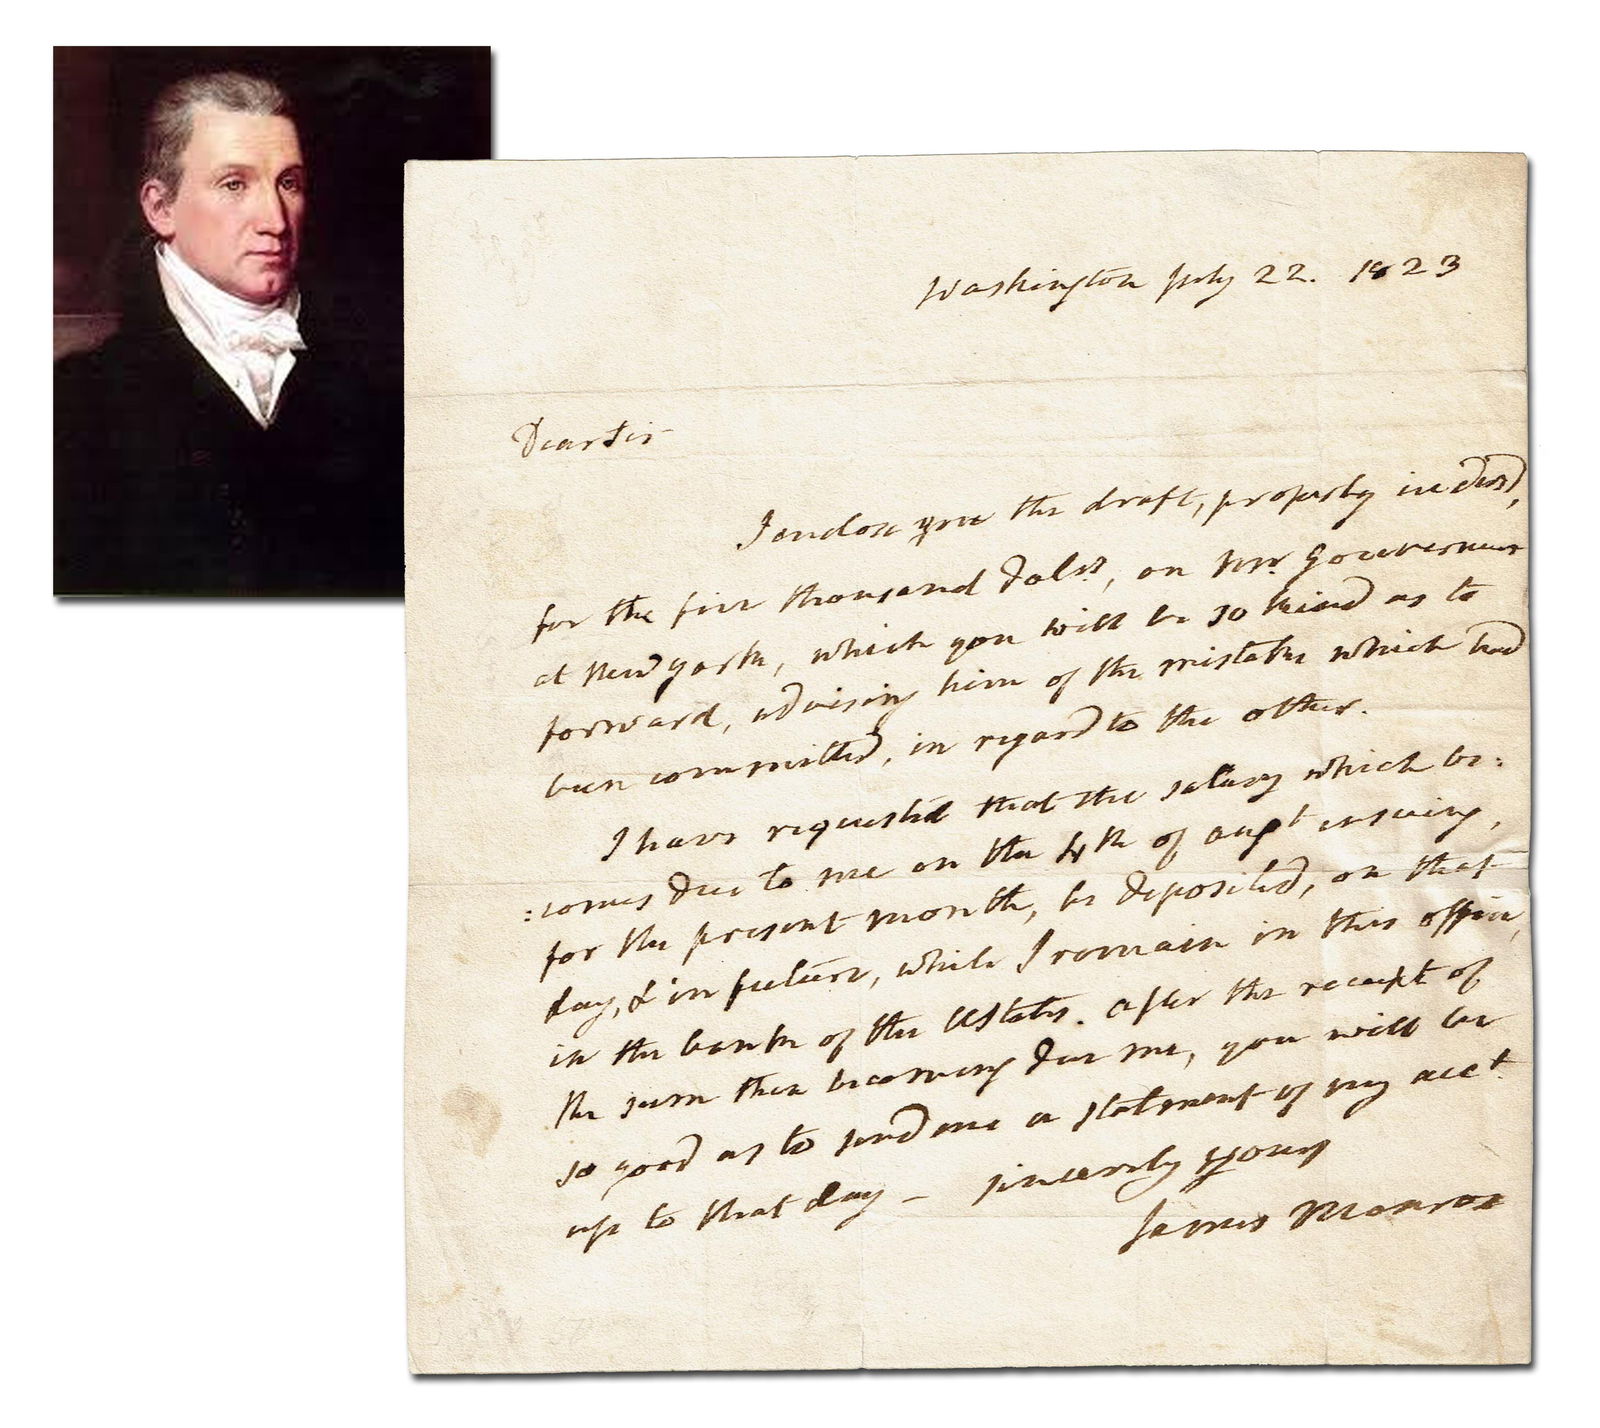 Washington July 22. 1823
Dear Sir
I enclose you the draft, properly indors'd,
for the five thousand dolrs., on Mr. Gouverneur
at New york, which you will be so kind as to
forward, advising him of the mistake which had
been committed, in regard to the other.
I have requested that the salary which be:
:comes due to me on the 4th of augt ensuing,
for the present month, be deposited, on that
day, & in future, while I remain in this office,
in the bank of the UStates. After the receipt of
the sum then becoming due me, you will be
so good as to send me a statement of my acct.
up to that day — sincerely yours
James Monroe